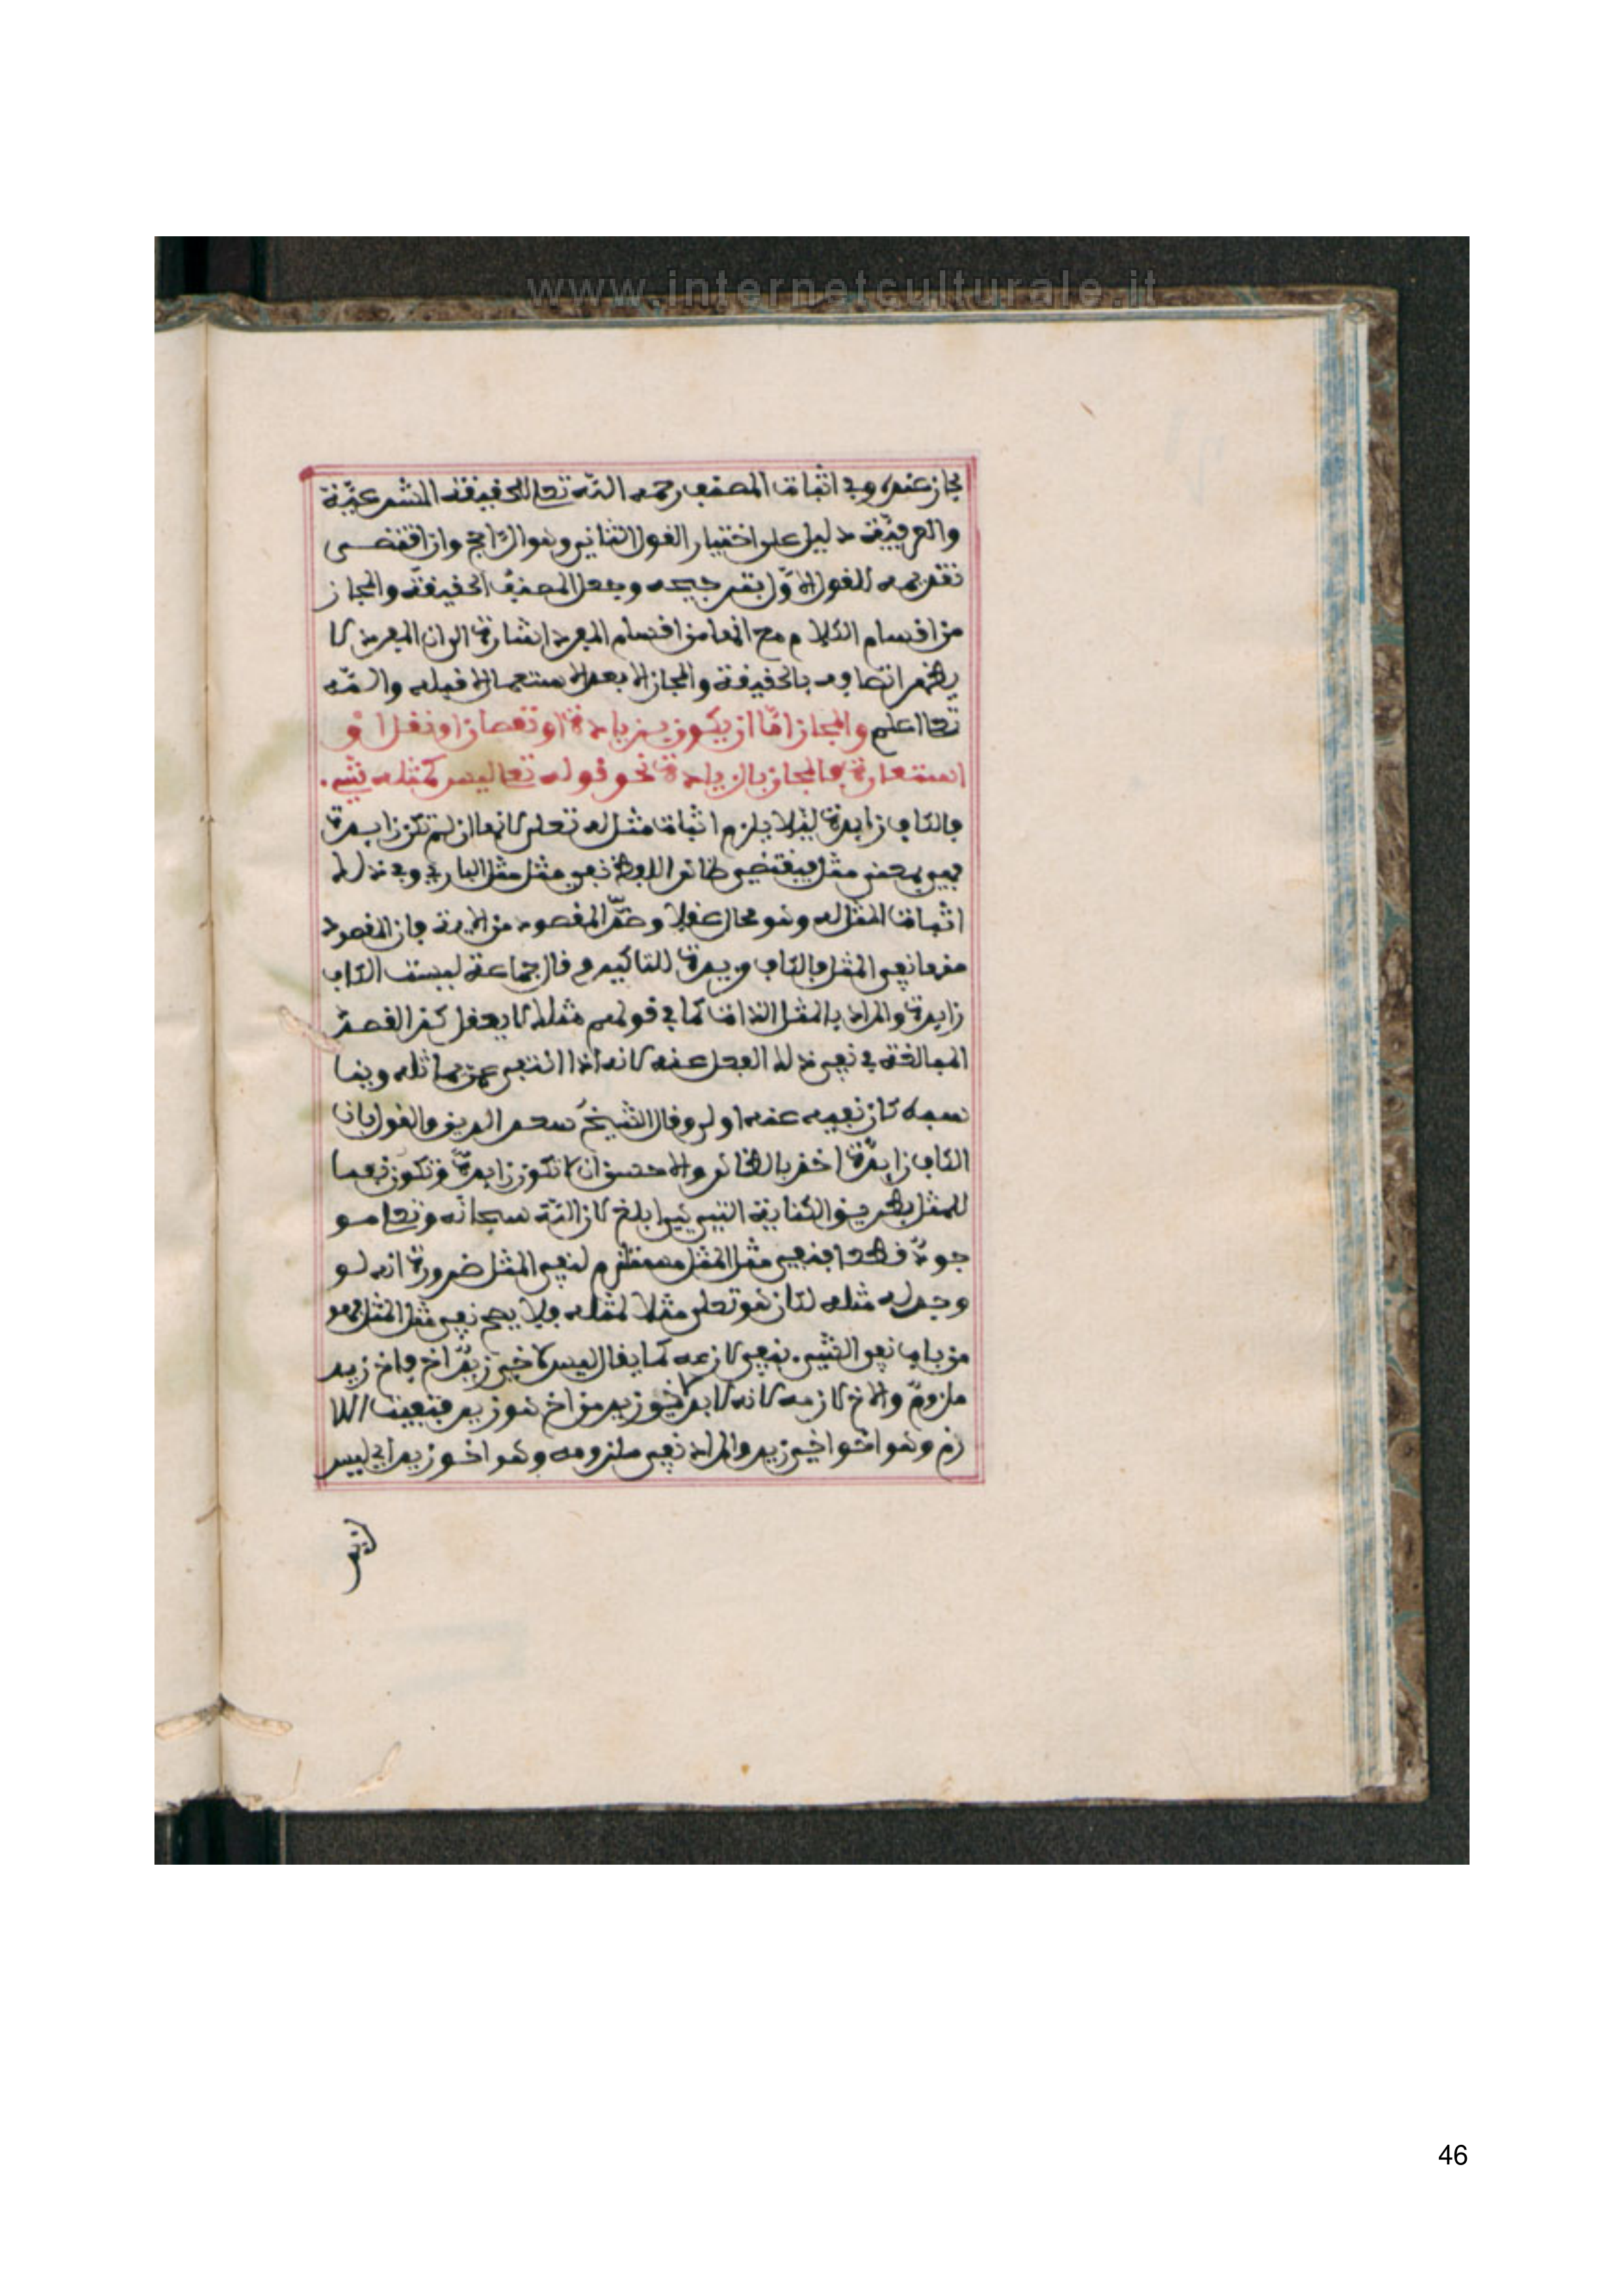 www.internetculturale.it
مجاز عنده وفي اثبات المصنف رحمه الله تعالى الحقيقة الشرعيّة
والعرفيّة دليل على اختيار القول الثاني وهو الرّاجح وان اقتضى
تقديمه للقول الاوّل بترجيحه وجعل المصنّف الحقيقة والمجاز
من اقسام الكلام مع انهما من اقسام المفرد اشارة الى ان المفرد لا
يظهر اتصافه بالحقيقة والمجاز الا بعد الاستعمال لا قبله والله
تعالى اعلم والمجاز امّا ان يكون بزيادة او نقصان او نقل او
استعارة فالمجاز بالزيادة نحو قوله تعالى ليس كمثله شيء.
فالكاف زايدة ليلا يلزم اثبات مثل له تعلى لانها ان لم تكن زايدة
فهي بمعنى مثل فيقتضي ظاهر اللفظ نفي مثل مثل الباري وفي ذلك
اثبات المثل له وهو محال عقلا وضدّ المقصود من الاية فان المقصود
منها نفي المثل فالكاف مزيدة للتاكيد وقال جماعة ليست الكاف
زايدة والمراد بالمثل الذات كما في قولهم مثلك لا يفعل كذا لقصد
المبالغة في نفي ذلك الفعل عنه لانه اذا انتفى عمن يماثله وينا
سبه كان نفيه عنه اولى وقال الشيخ سعد الدين والقول بان
الكاف زايدة اخذ بالظاهر والاحسن ان لا تكون زايدة وتكون نفيا
للمثل بطريق الكناية التي هي ابلغ لان الله سبحانه وتعلى مو
جود قطعا فنفي مثل المثل مستلزم لنفي المثل ضرورة انه لو
وجد له مثله لكان هو تعلى مثلا لمثله فلا يصح نفي مثل المثل فهو
من باب نفي الشيء بنفي لازمه كما يقال ليس لاخي زيد اخ فاخ زيد
ملزوم والاخ لازمه لانه لا بد لاخي زيد من اخ هو زيد فنفيت اللا
زم وهو اخو اخي زيد والمراد نفي ملزومه وهو اخو زيد اي ليس
لزيد
46